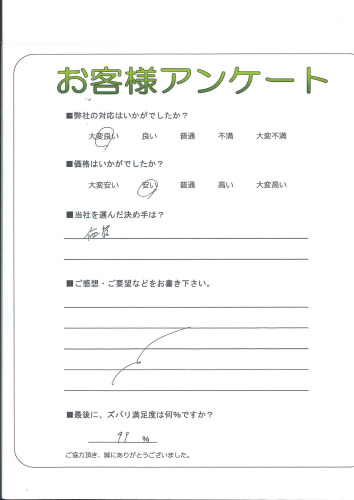 お客様アンケート
■弊社の対応はいかがでしたか？
大変良い 良い 普通 不満 大変不満
■価格はいかがでしたか？
大変安い 安い 普通 高い 大変高い
■当社を選んだ決め手は？
価格
■ご感想・ご要望などをお書き下さい。
■最後に、ズバリ満足度は何%ですか？
99 %
ご協力頂き、誠にありがとうございました。